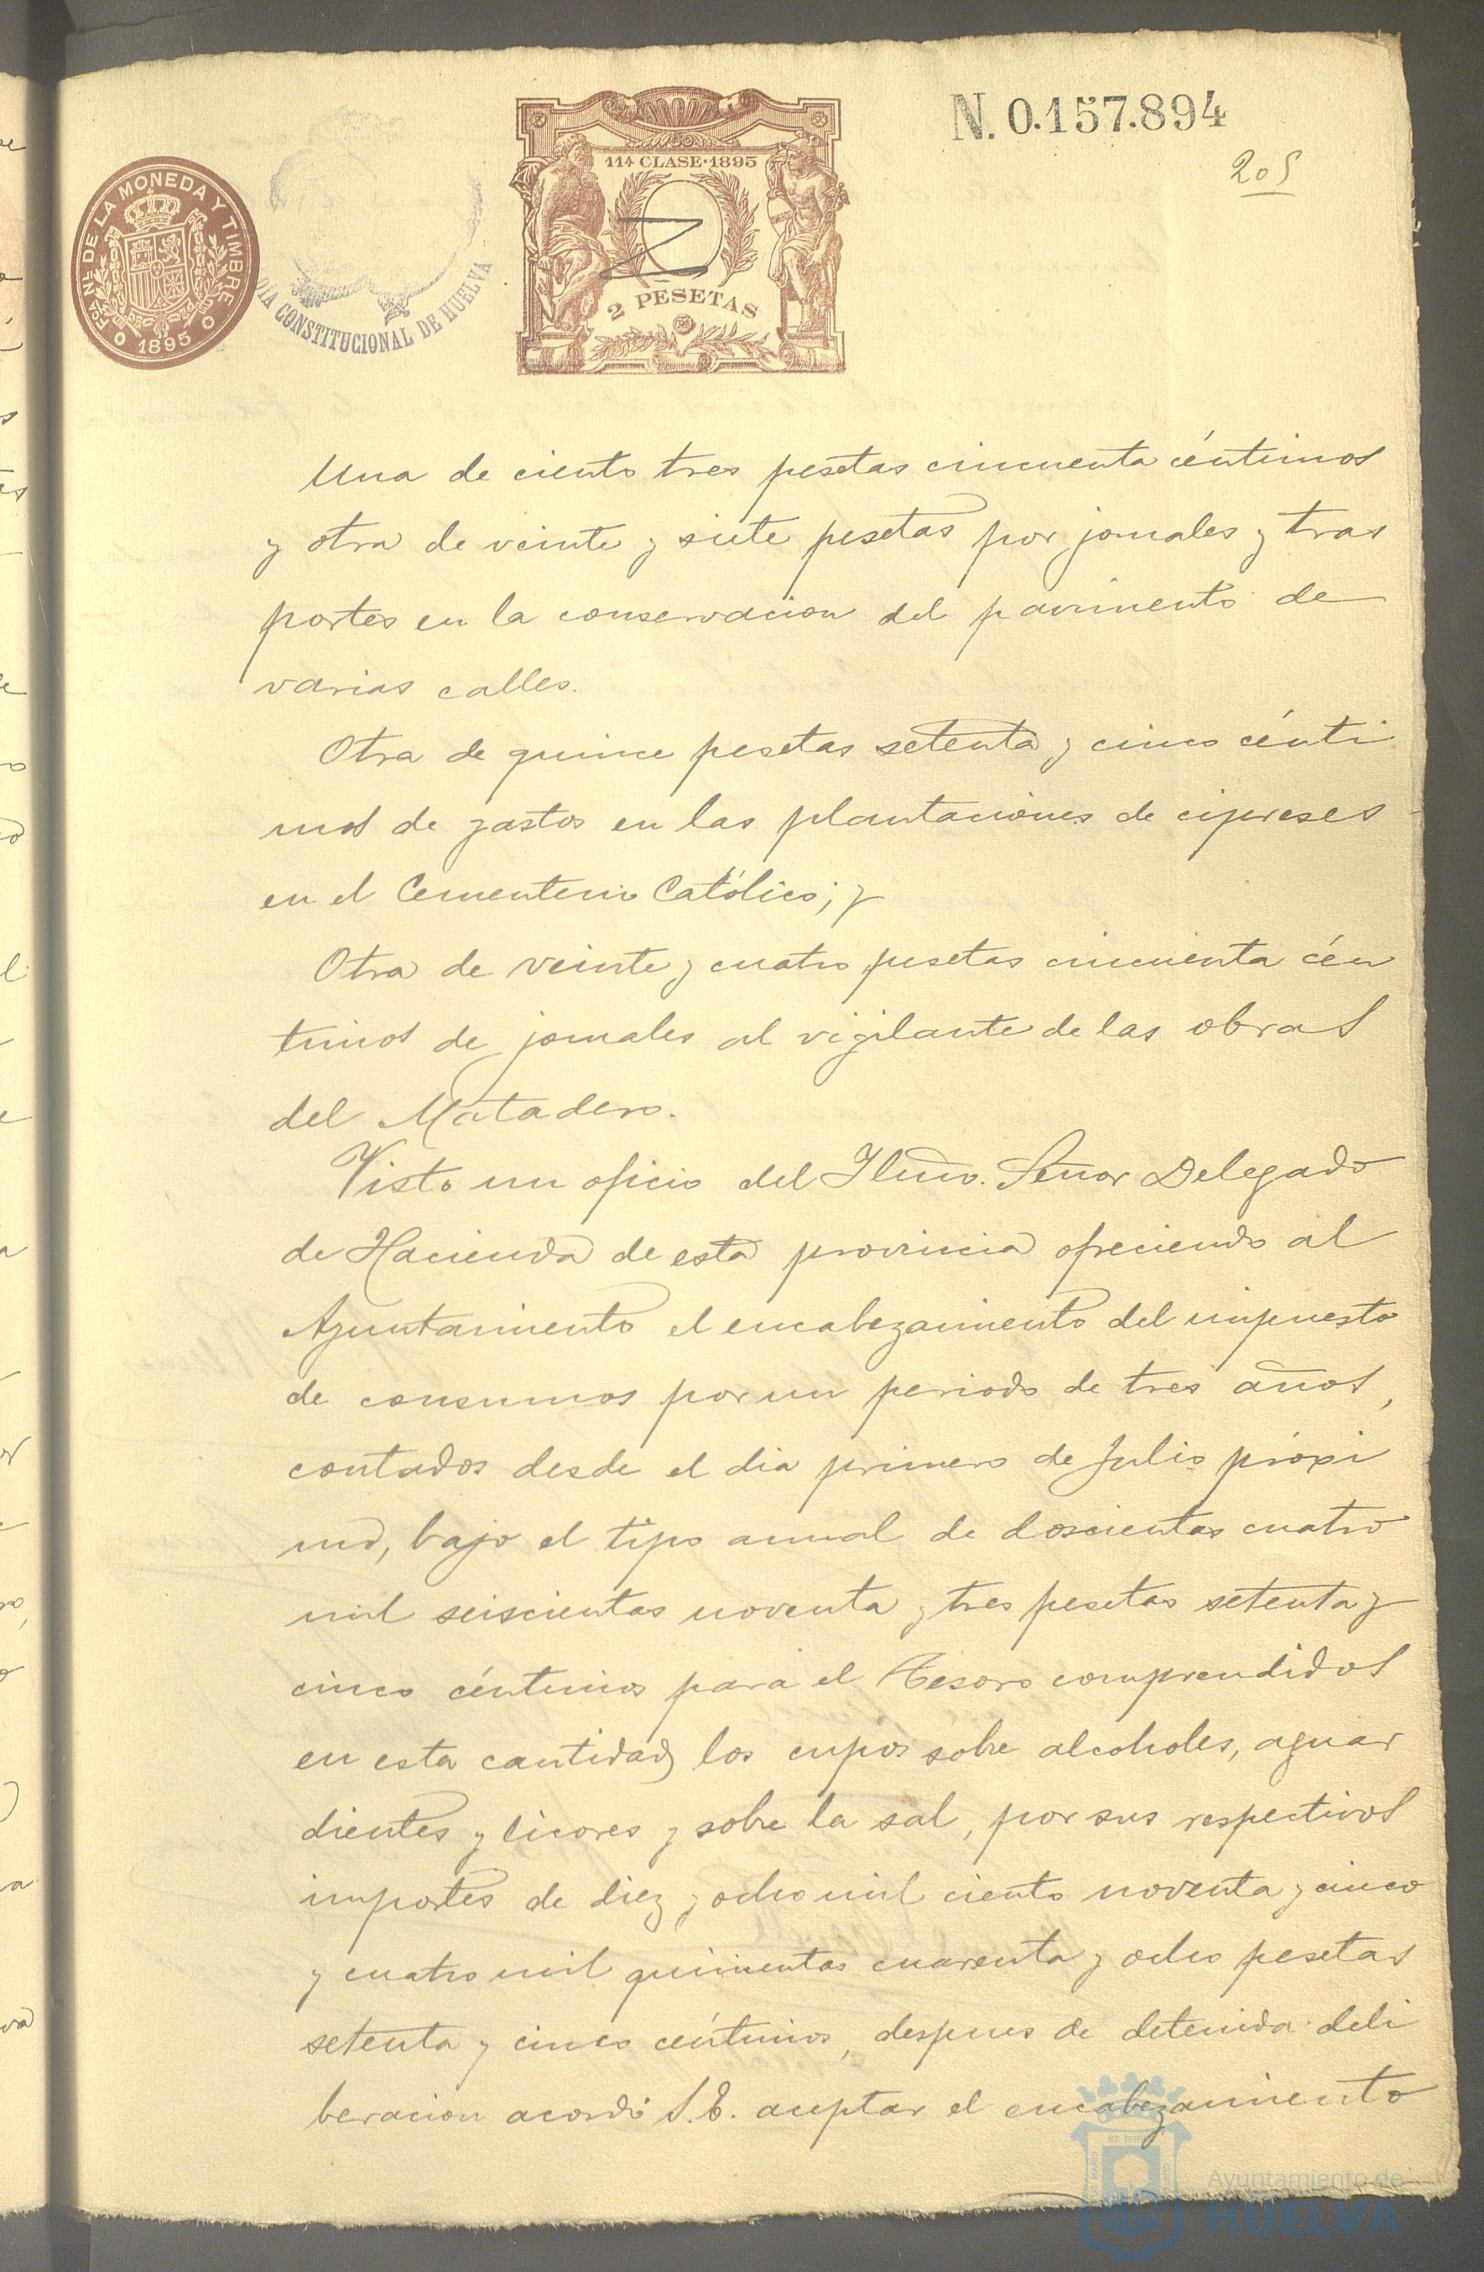 N. 0.157.894
205
FCA. NL. DE LA MONEDA Y TIMBRE
1895
DIA CONSTITUCIONAL DE HUELVA
11ª CLASE·1895
2 PESETAS
Una de ciento tres pesetas cincuenta céntimos
y otra de veinte y siete pesetas por jornales y tras
portes en la conservacion del pavimento de
varias calles.
Otra de quince pesetas setenta y cinco cénti
mos de gastos en las plantaciones de cipreses
en el Cementerio Católico; y
Otra de veinte y cuatro pesetas cincuenta cén
timos de jornales al vigilante de las obras
del Matadero.
Visto un oficio del Ilmo. Señor Delegado
de Hacienda de esta provincia ofreciendo al
Ayuntamiento el encabezamiento del impuesto
de consumos por un periodo de tres años,
contados desde el dia primero de Julio próxi
mo, bajo el tipo anual de doscientas cuatro
mil seiscientas noventa y tres pesetas setenta y
cinco céntimos para el Tesoro comprendidos
en esta cantidad los cupos sobre alcoholes, aguar
dientes y licores y sobre la sal, por sus respectivos
importes de diez y ocho mil ciento noventa y cinco
y cuatro mil quinientas cuarenta y ocho pesetas
setenta y cinco céntimos, despues de detenida deli
beracion acordó S.E. aceptar el encabezamiento
Ayuntamiento de
HUELVA